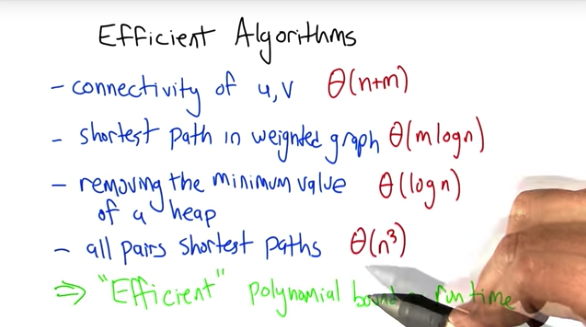 Efficient Algorithms
- connectivity of u,v Θ(n+m)
- shortest path in weighted graph Θ(m log n)
- removing the minimum value Θ(log n)
of a heap
- all pairs shortest paths Θ(n³)
⇒ "Efficient" polynomial runtime